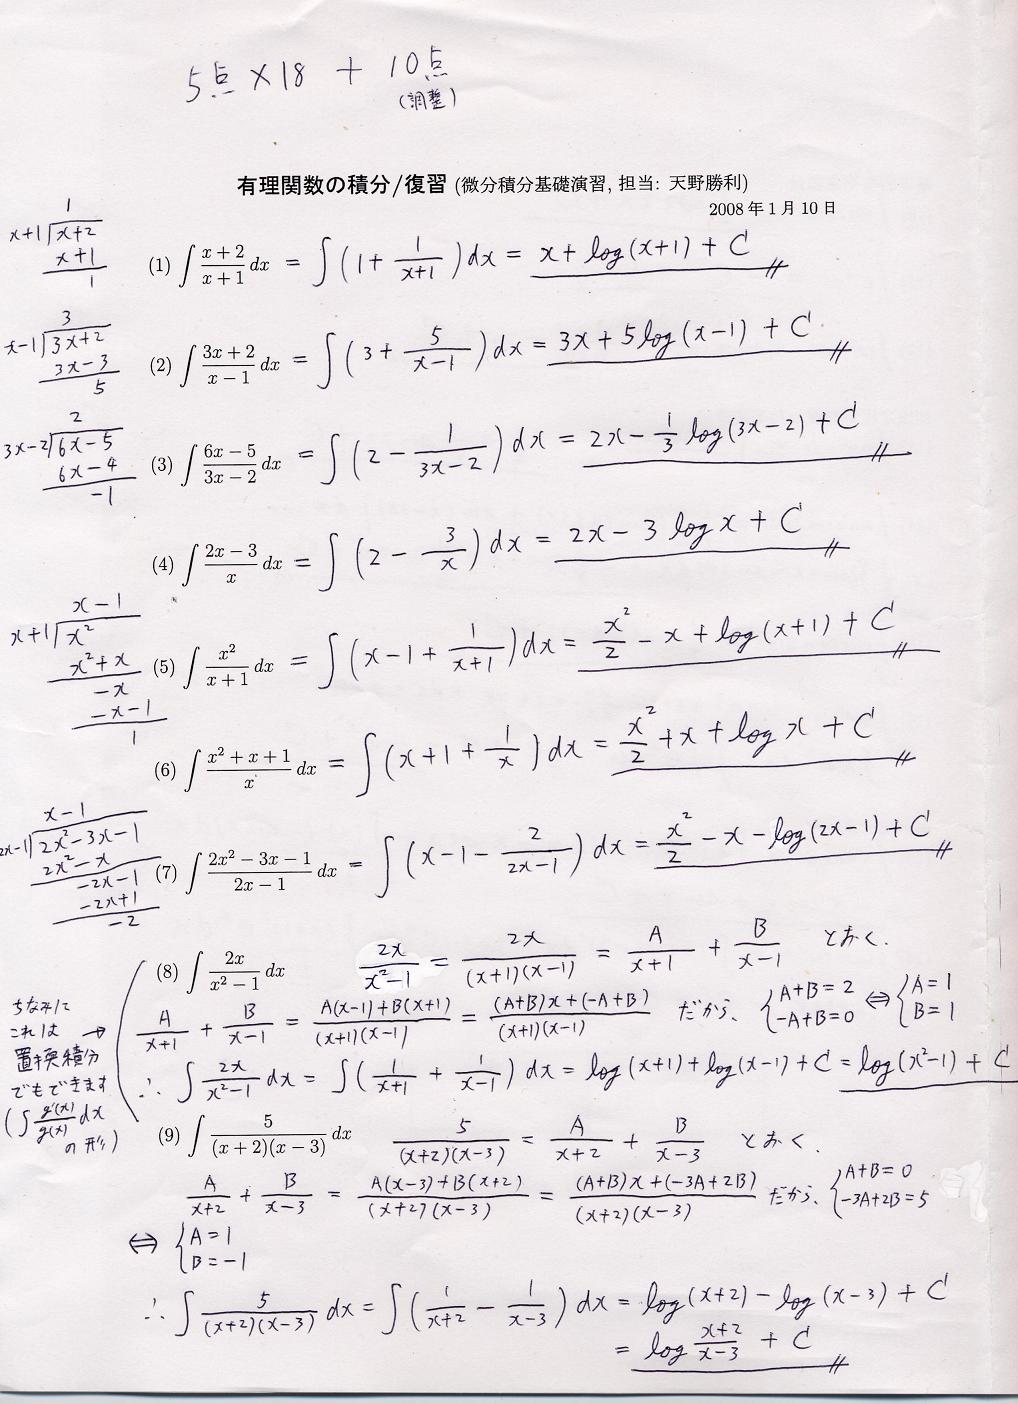 5点×18 + 10点
(調整)
有理関数の積分/復習 (微分積分基礎演習, 担当: 天野勝利)
2008年1月10日
1
x+1 x+2
x+1
1
(1) ∫ (x+2)/(x+1) dx = ∫(1 + 1/(x+1))dx = x + log(x+1) + C
3
x-1 3x+2
3x-3
5
(2) ∫ (3x+2)/(x-1) dx = ∫(3 + 5/(x-1))dx = 3x + 5log(x-1) + C
2
3x-2 6x-5
6x-4
-1
(3) ∫ (6x-5)/(3x-2) dx = ∫(2 - 1/(3x-2))dx = 2x - 1/3 log(3x-2) + C
(4) ∫ (2x-3)/x dx = ∫(2 - 3/x)dx = 2x - 3 log x + C
x-1
x+1 x²
x²+x
-x
-x-1
1
(5) ∫ x²/(x+1) dx = ∫(x-1 + 1/(x+1))dx = x²/2 - x + log(x+1) + C
(6) ∫ (x²+x+1)/x dx = ∫(x+1 + 1/x)dx = x²/2 + x + log x + C
x-1
2x-1 2x²-3x-1
2x²-x
-2x-1
-2x+1
-2
(7) ∫ (2x²-3x-1)/(2x-1) dx = ∫(x-1 - 2/(2x-1))dx = x²/2 - x - log(2x-1) + C
(8) ∫ 2x/(x²-1) dx 2x/(x²-1) = 2x/((x+1)(x-1)) = A/(x+1) + B/(x-1) とおく.
A/(x+1) + B/(x-1) = (A(x-1)+B(x+1))/((x+1)(x-1)) = ((A+B)x+(-A+B))/((x+1)(x-1)) だから、 {A+B=2 -A+B=0 ⇔ {A=1 B=1
∴ ∫ 2x/(x²-1) dx = ∫(1/(x+1) + 1/(x-1))dx = log(x+1) + log(x-1) + C = log(x²-1) + C
ちなみに
これは →
置換積分
でもできます
(∫ g'(x)/g(x) dx
の形)
(9) ∫ 5/((x+2)(x-3)) dx 5/((x+2)(x-3)) = A/(x+2) + B/(x-3) とおく.
A/(x+2) + B/(x-3) = (A(x-3)+B(x+2))/((x+2)(x-3)) = ((A+B)x+(-3A+2B))/((x+2)(x-3)) だから、 {A+B=0 -3A+2B=5
⇔ {A=1 B=-1
∴ ∫ 5/((x+2)(x-3)) dx = ∫(1/(x+2) - 1/(x-3))dx = log(x+2) - log(x-3) + C
= log (x+2)/(x-3) + C